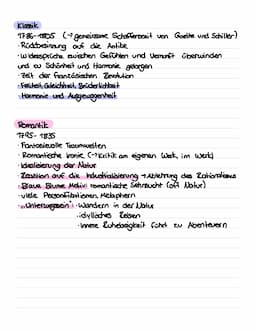 Klassik
1786-1805 (→ gemeinsame Schaffenszeit von Goethe und Schiller)
- Rückbesinnung auf die Antike
- Widersprüche zwischen Gefühlen und Vernunft überwinden
und zu Schönheit und Harmonie gelangen
- Zeit der Französischen Revolution
- Freiheit, Gleichheit, Brüderlichkeit
- Harmonie und Ausgewogenheit
Romantik
1795-1835
- Fantasievolle Traumwelten
- Romantische Ironie (→ Kritik am eigenen Werk, im Werk)
- Idealisierung der Natur
- Reaktion auf die Industrialisierung → Ablehnung des Rationalismus
- Blaue Blume Motiv: romantische Sehnsucht (oft Natur)
- viele Personifikationen, Metaphern
- "Unterwegssein": - Wandern in der Natur
- idyllisches Reisen
- innere Ruhelosigkeit führt zu Abenteuern